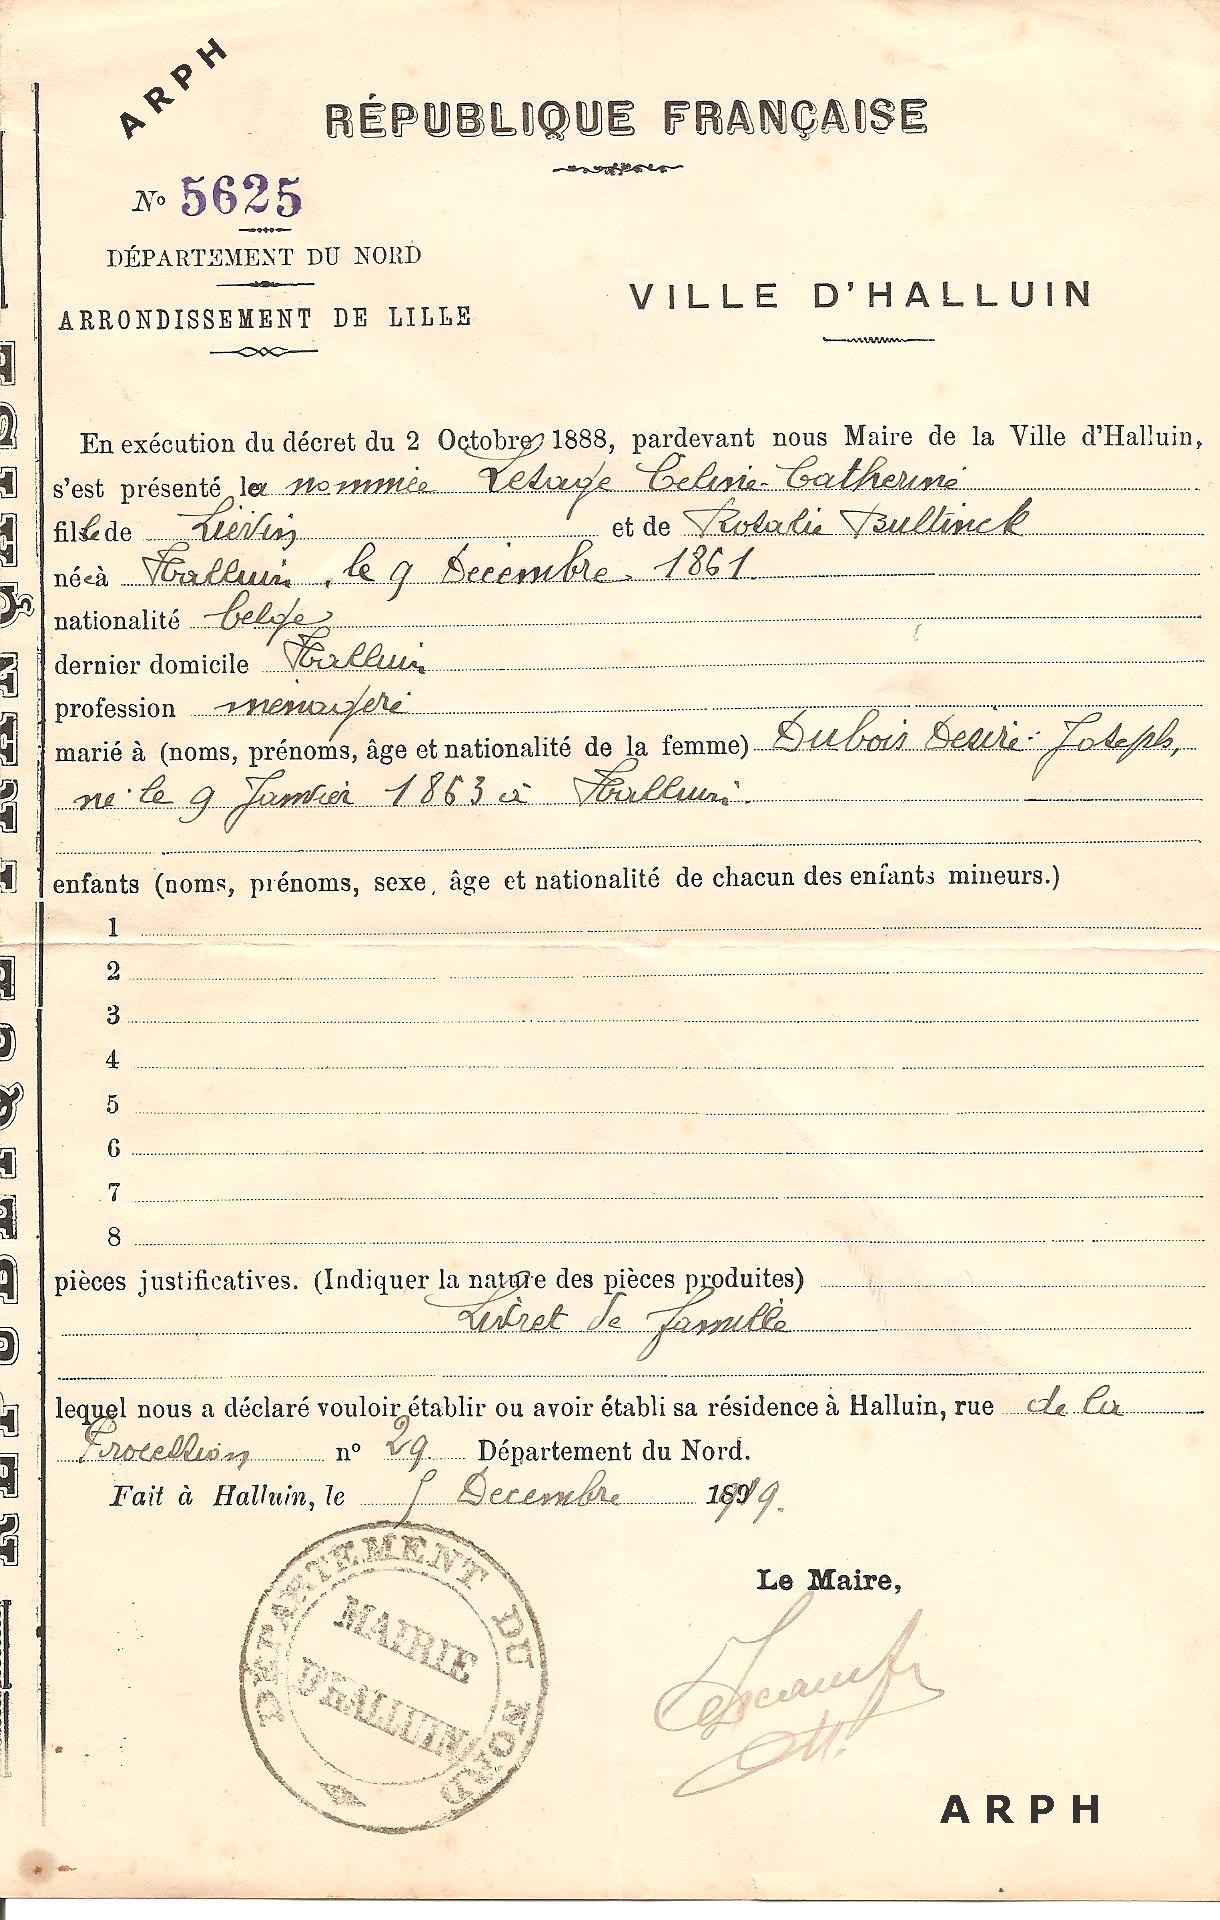 ARPH
RÉPUBLIQUE FRANÇAISE
No 5625
DÉPARTEMENT DU NORD
ARRONDISSEMENT DE LILLE
VILLE D'HALLUIN
RÉPUBLIQUE FRANÇAISE
En exécution du décret du 2 Octobre 1888, pardevant nous Maire de la Ville d'Halluin,
s'est présenté la nommée Lesage Céline-Catherine
fille de Liévin et de Rosalie Bultinck
née à Halluin, le 9 Décembre 1861
nationalité belge
dernier domicile Halluin
profession ménagère
marié à (noms, prénoms, âge et nationalité de la femme) Dubois Désiré-Joseph,
né le 9 Janvier 1863 à Halluin.
enfants (noms, prénoms, sexe, âge et nationalité de chacun des enfants mineurs.)
1
2
3
4
5
6
7
8
pièces justificatives. (Indiquer la nature des pièces produites)
Livret de famille
lequel nous a déclaré vouloir établir ou avoir établi sa résidence à Halluin, rue de la
Procession n° 29 Département du Nord.
Fait à Halluin, le 5 Decembre 1919.
DÉPARTEMENT DU NORD
MAIRIE
D'HALLUIN
Le Maire,
ARPH